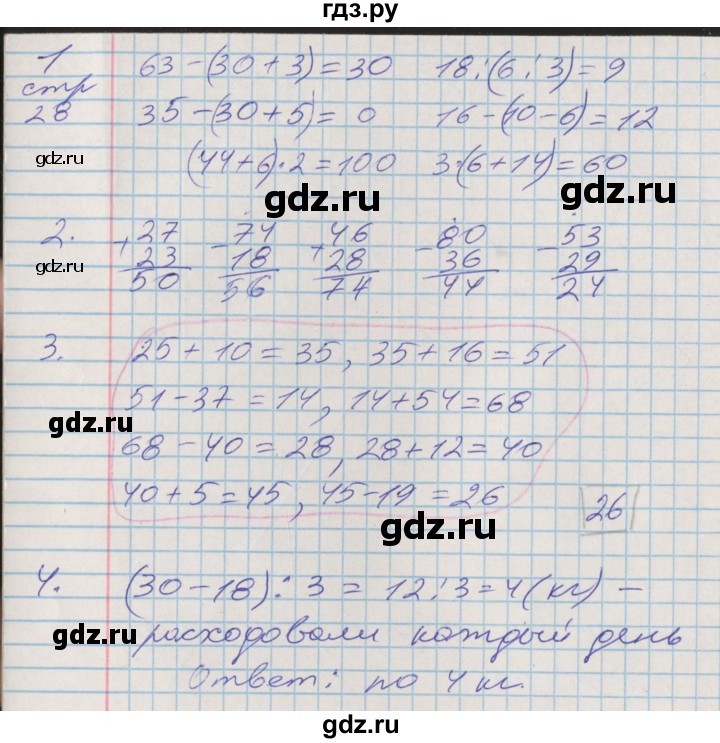 гдз.ру
1
стр
28
63-(30+3)=30 18:(6:3)=9
35-(30+5)=0 16-(10-6)=12
(44+6)·2=100 3·(6+14)=60
gdz.ru
gdz.ru
gdz.ru
2. +27 -74 +46 -80 -53
23 18 28 36 29
50 56 74 44 24
gdz.ru
3. 25+10=35, 35+16=51
51-37=14, 14+54=68
gdz.ru
68-40=28, 28+12=40
40+5=45, 45-19=26 26
gdz.ru
4. (30-18):3=12:3=4(кг)-
расходовали каждый день
gdz.ru
Ответ: по 4 кг.
gdz.ru